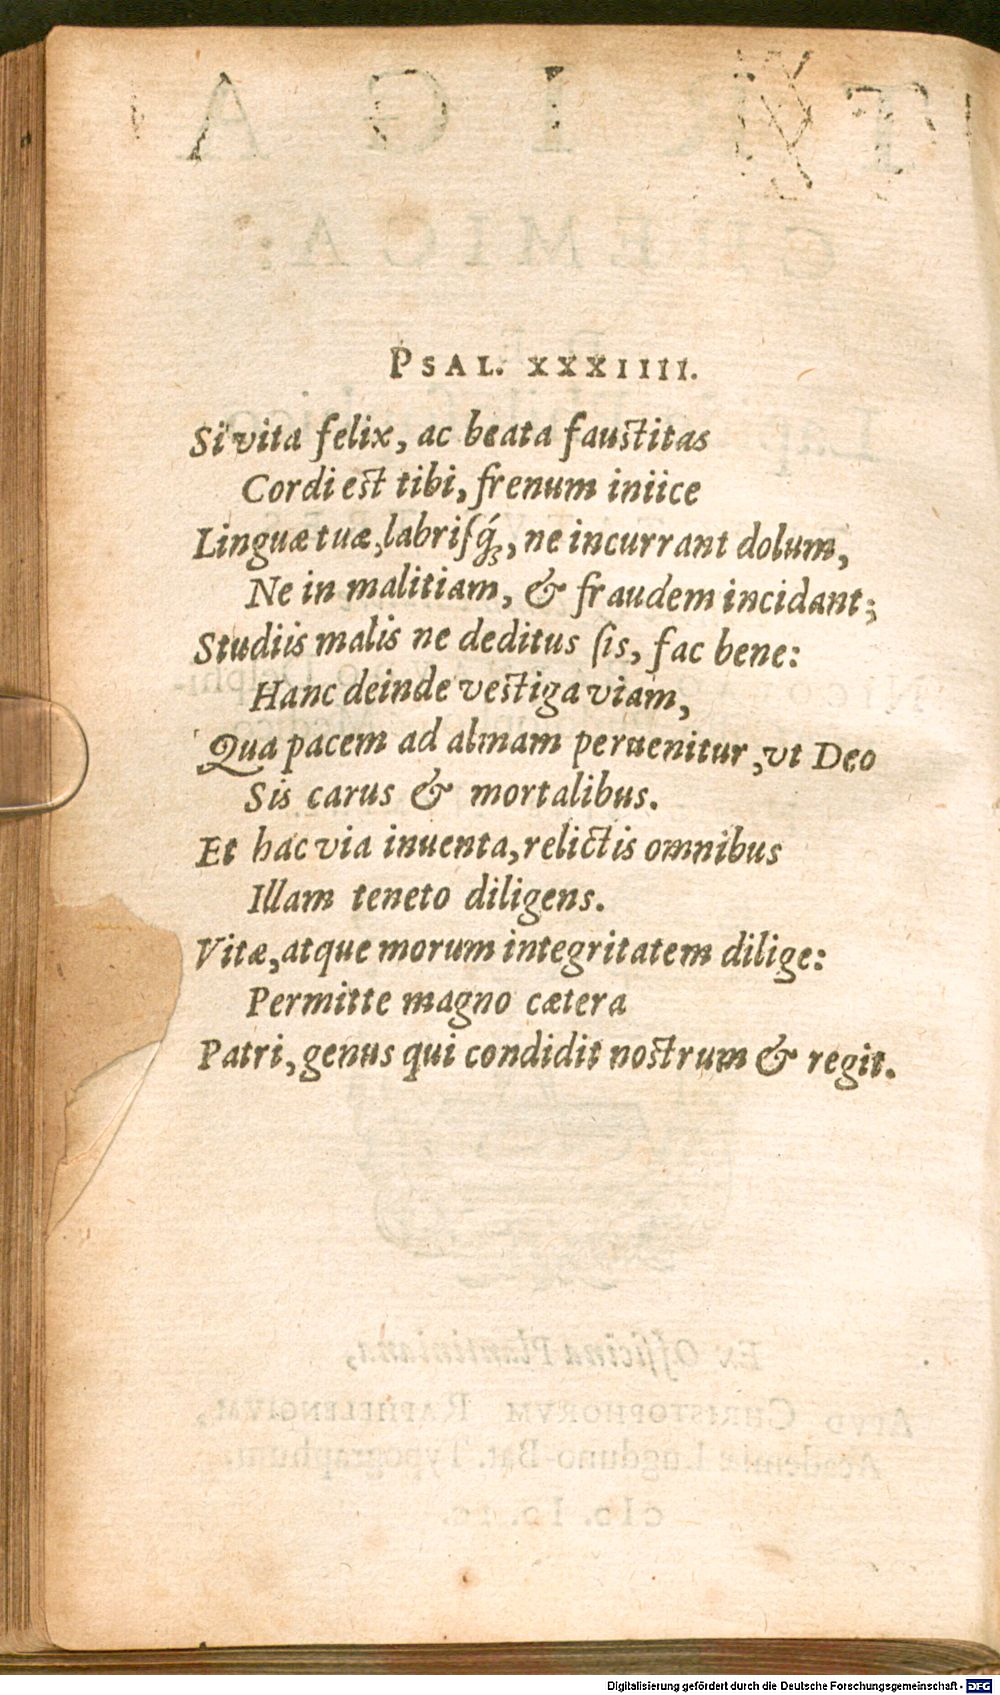 PSAL. XXXIIII.
Si vita felix, ac beata faustitas
Cordi est tibi, frenum iniice
Linguæ tuæ, labrisq́ꝫ, ne incurrant dolum,
Ne in malitiam, & fraudem incidant;
Studiis malis ne deditus sis, fac bene:
Hanc deinde vestiga viam,
Qua pacem ad almam peruenitur, vt Deo
Sis carus & mortalibus.
Et hac via inuenta, relictis omnibus
Illam teneto diligens.
Vitæ, atque morum integritatem dilige:
Permitte magno cætera
Patri, genus qui condidit nostrum & regit.
Digitalisierung gefördert durch die Deutsche Forschungsgemeinschaft - DFG